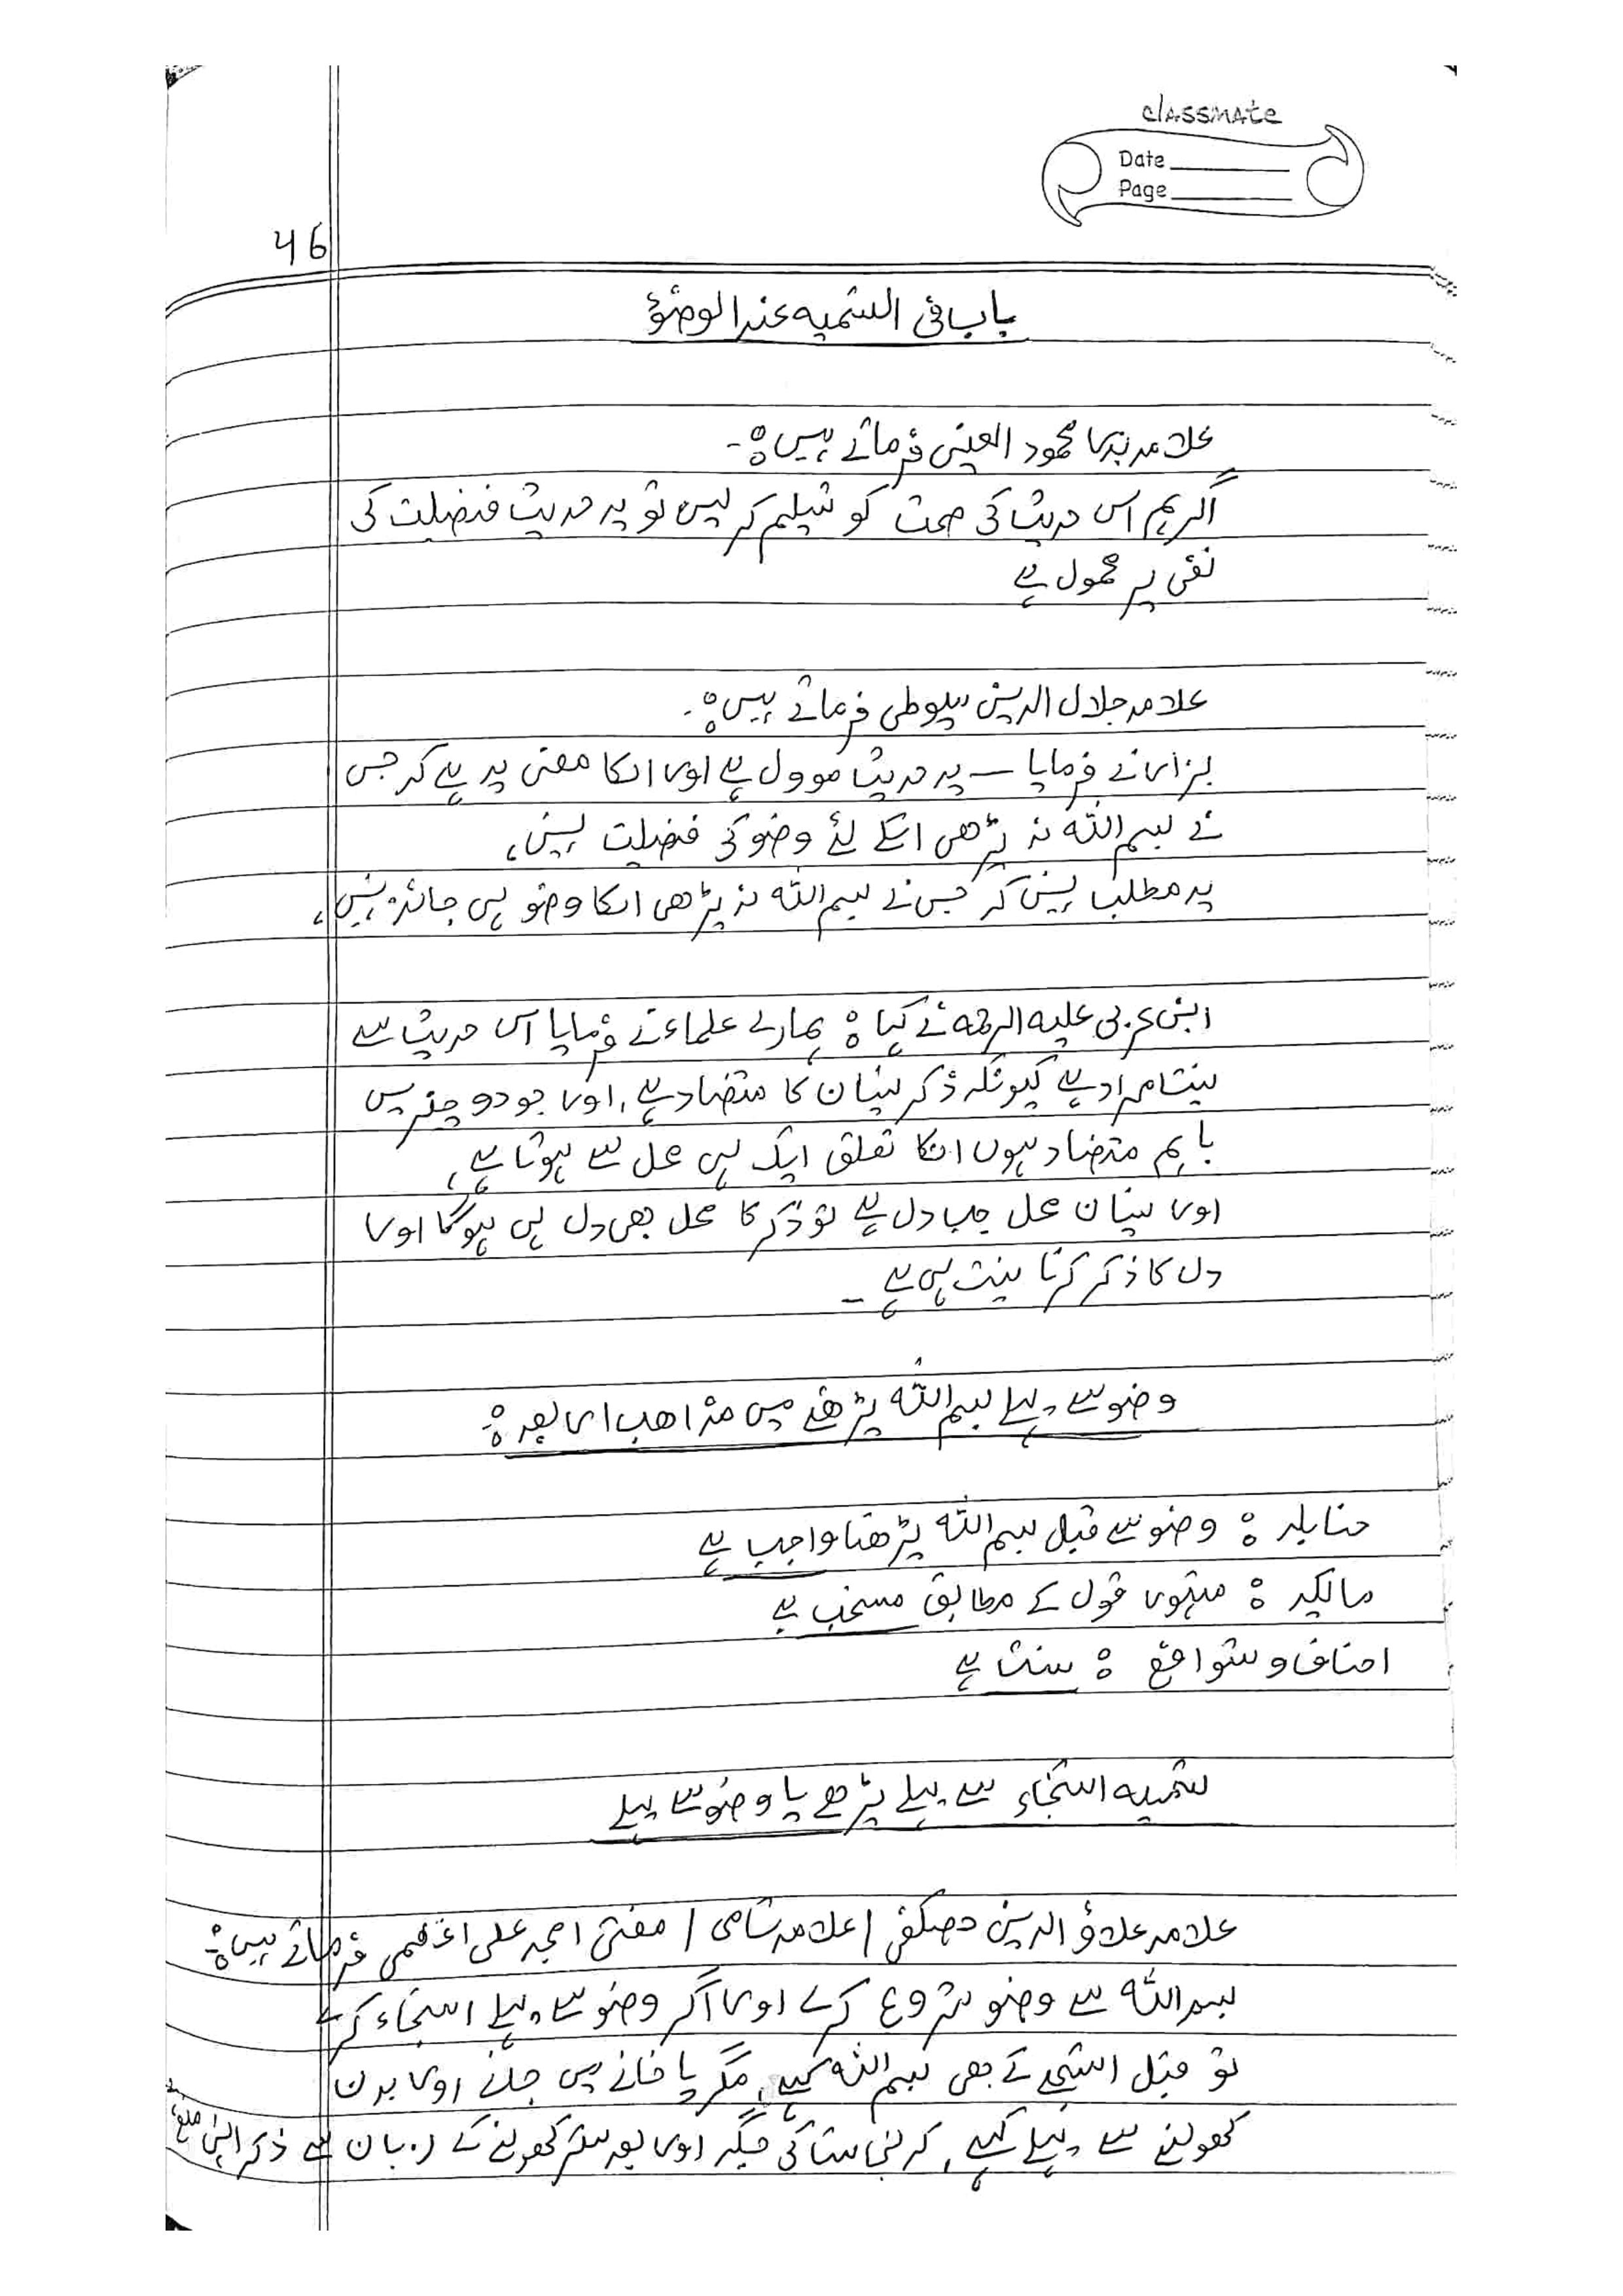 classmate
Date
Page
46
باب فی التسمیہ عند الوضوٗ
علامہ بدر محمود العینی فرماتے ہیں :-
اگر ہم اس حدیث کی صحت کو تسلیم کر لیں تو یہ حدیث فضیلت کی
نفی پر محمول ہے
علامہ جلال الدین سیوطی فرماتے ہیں :-
بزار نے فرمایا — یہ حدیث موول ہے اور اسکا معنی یہ ہے کہ جس
نے بسم اللہ نہ پڑھی اسکے لئے وضو کی فضیلت نہیں،
یہ مطلب نہیں کہ جس نے بسم اللہ نہ پڑھی اسکا وضو ہی جائز نہیں،
ابن عربی علیہ الرحمہ نے کہا : ہمارے علماء نے فرمایا اس حدیث سے
نیت مراد ہے کیونکہ ذکر نسیان کا متضاد ہے، اور جو دو چیزیں
باہم متضاد ہوں انکا تعلق ایک ہی محل سے ہوتا ہے،
اور نسیان محل جب دل ہے تو ذکر کا محل بھی دل ہی ہوگا اور
دل کا ذکر کرنا نیت ہی ہے –
وضو سے پہلے بسم اللہ پڑھنے میں مذاھب اربعہ :-
حنابلہ : وضو سے قبل بسم اللہ پڑھنا واجب ہے
مالکیہ : مشہور قول کے مطابق مستحب ہے
احناف و شوافع : سنت ہے
تسمیہ استنجاء سے پہلے پڑھے یا وضو سے پہلے
علامہ علاؤ الدین حصکفی / علامہ شامی / مفتی امجد علی اعظمی فرماتے ہیں :-
بسم اللہ سے وضو شروع کرے اور اگر وضو سے پہلے استنجاء کرے
تو قبل استنجے کے بھی بسم اللہ کہے، مگر پاخانے میں جانے اور بدن
کھولنے سے پہلے کہے، کہ نجاست کی جگہ اور بعد ستر کھولنے کے زبان سے ذکر الہی منع ہے